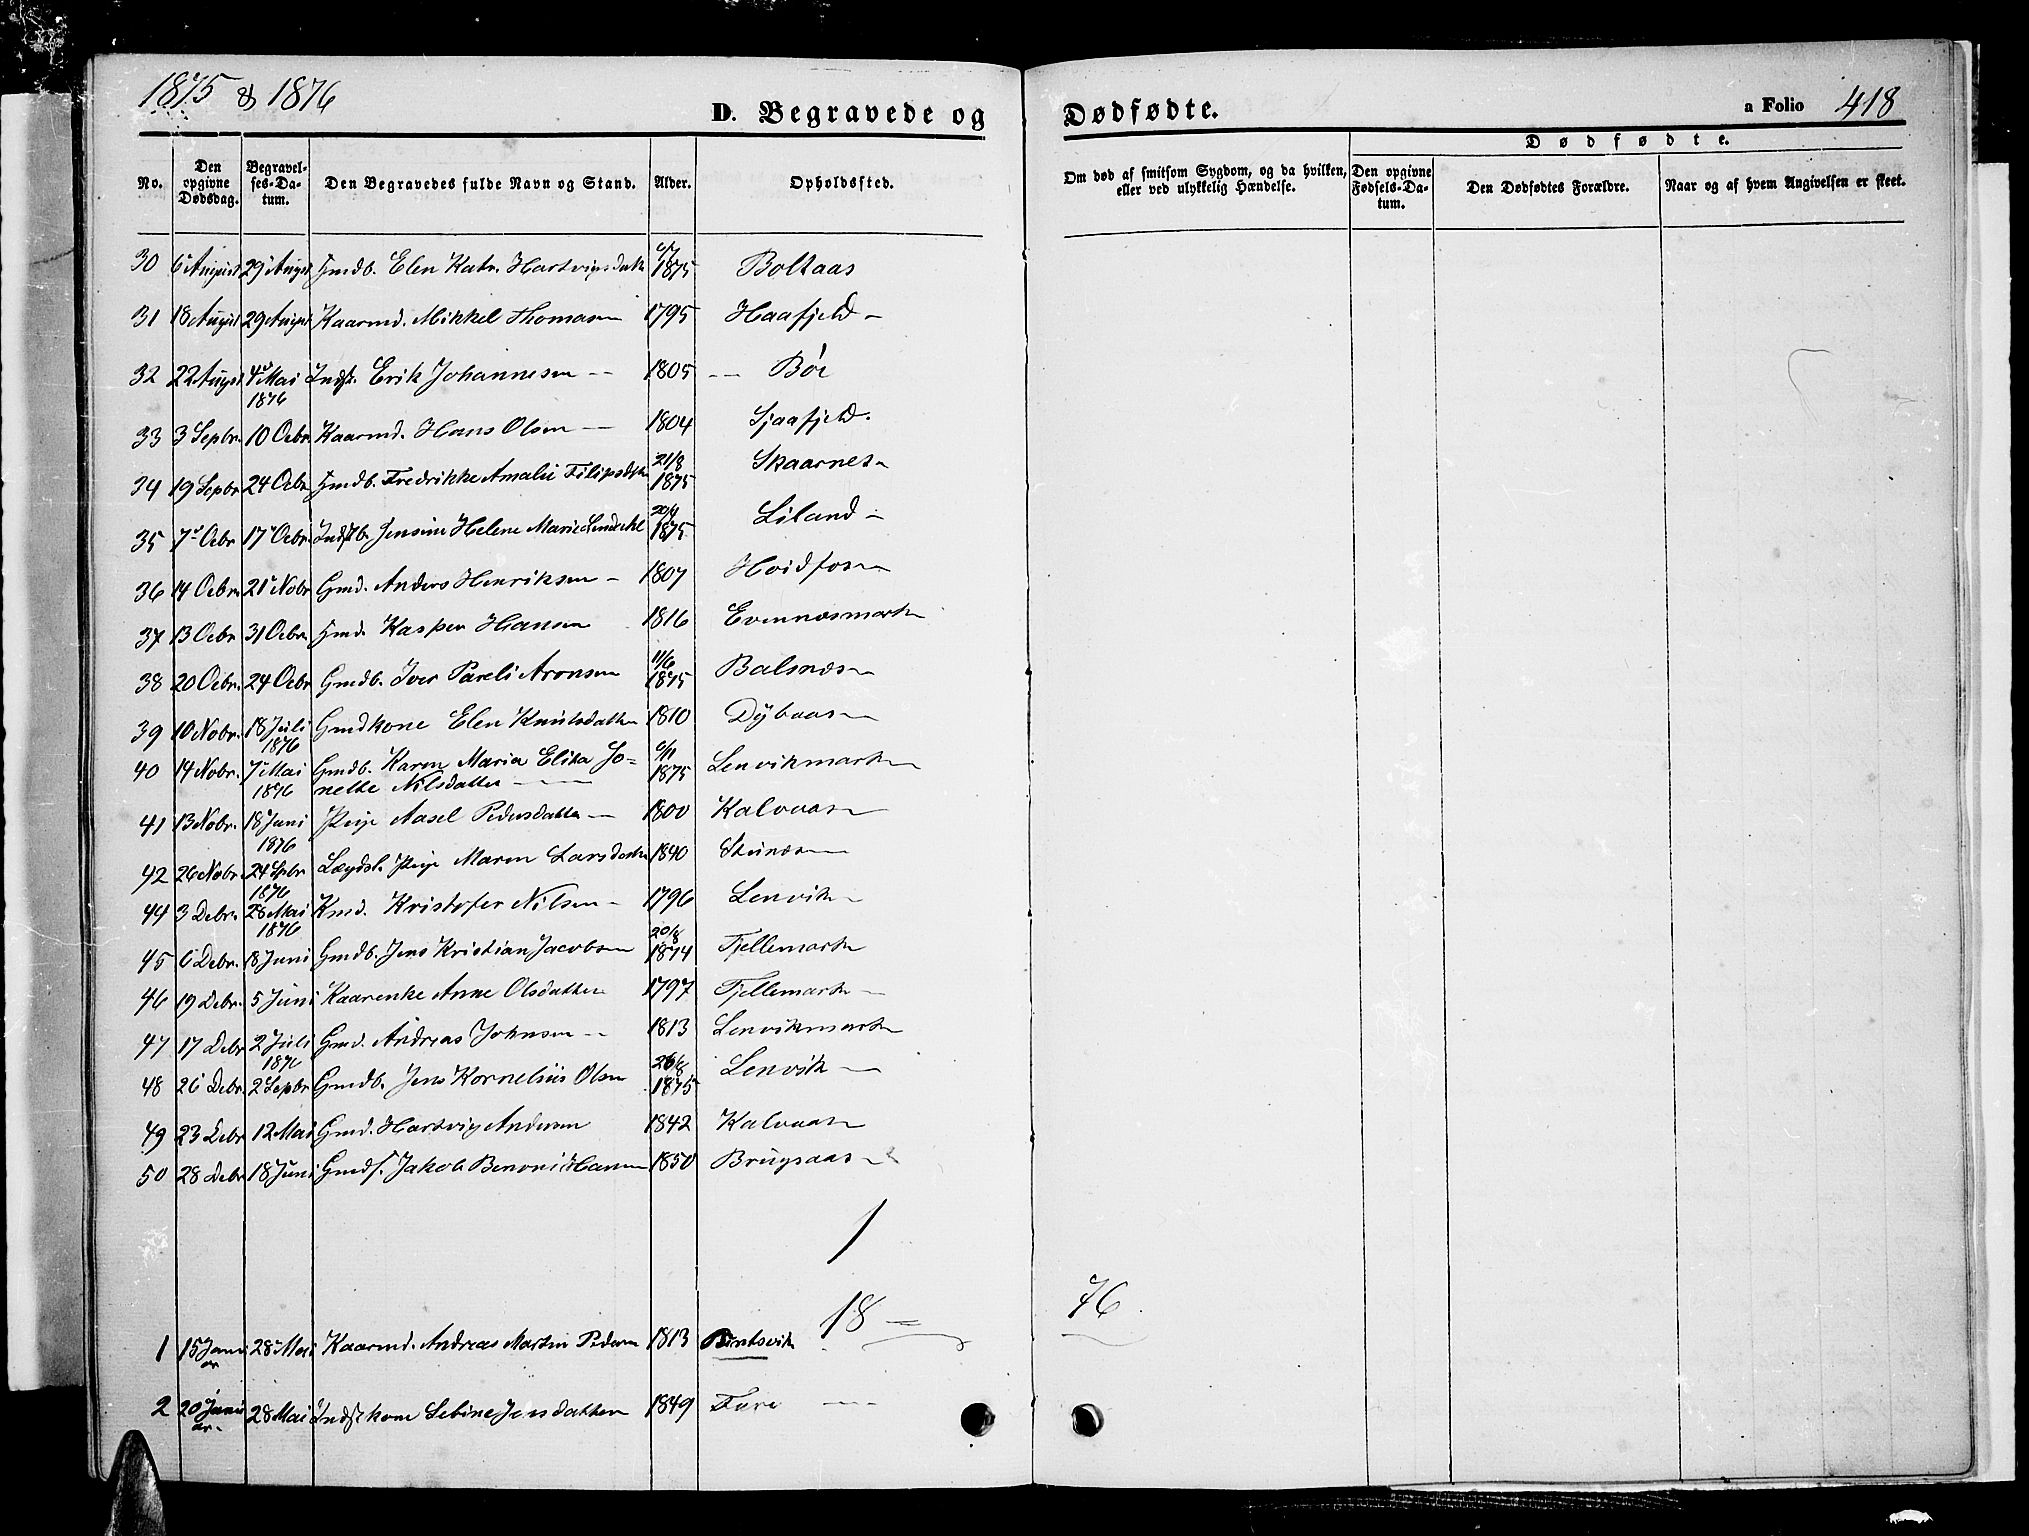 1875 & 1876
D. Begravede og Dødfødte.
a Folio 418
No.
Den opgivne Dødsdag.
Begravelses-Datum.
Den Begravedes fulde Navn og Stand.
Alder.
Opholdssted.
Om død af smitsom Sygdom, og da hvilken, eller ved ulykkelig Hændelse.
Dødfødte.
Den opgivne Fødsels-Datum.
Den Dødfødtes Forældre.
Naar og af hvem Angivelsen er skeet.
30 6 August 29 August Gmdb. Elen Katr. Hartvigsdatt 1875 Boltaas
31 18 August 29 August Kaarmd. Mikkel Thomasen 1795 Haafjeld
32 22 August 4 Mai 1876 Indst. Erik Johannesen 1805 Bøe
33 3 Sepbr. 10 Ocbr. Kaarmd. Hans Olsen 1804 Sjaafjeld.
34 19 Sepbr. 24 Ocbr. Gmdb. Fredrikke Amalie Filipsdtr 21/8 1875 Skaarnes
35 7 Ocbr. 17 Ocbr. Indstb. Jensine Helene Marie Lindahl 1875 Liland
36 14 Ocbr. 21 Nobr Gmd. Anders Henriksen 1807 Hoidfossen
37 13 Ocbr 31 Ocbr. Gmd. Kasper Hansen 1816 Evennæsmarken
38 20 Ocbr. 24 Ocbr Gmdb. Iver Pareli Aronsen 11/6 1875 Balsnæs
39 10 Nobr. 18 Juli 1876 Gmdkone Elen Knutsdatter 1810 Dybaasen
40 14 Nobr. 7 Mai 1876 Gmdb. Karen Maria Elisa Jonette Nilsdatter 6/11 1875 Lenvikmarken
41 13 Nobr. 18 Juni 1876 Pige Aasel Pedersdatter 1800 Kalvaas
42 26 Nobr. 24 Spbr 1876 Lægdsl. Pige Maren Larsdatter 1840 Stunæs
44 3 Debr. 28 Mai 1876 Kmd. Kristofer Nilsen 1796 Lenvik
45 6 Debr. 18 Juni Gmdb. Jens Kristian Jacobsen 20/8 1874 Fjellemark
46 19 Debr. 5 Juni Kaarenke Anne Olsdatter 1797 Fjellemark
47 17 Debr 2 Juli 1876 Gmd. Andreas Johnsen 1813 Lenvikmarken
48 26 Debr. 2 Sepbr Gmdb. Jens Kornelius Olsen 26/8 1875 Lenvik
49 23 Debr 12 Mai Gmd. Hartvig Andersen 1842 Kalvaas
50 28 Debr 18 Juni Gmds. Jakob Benoni Hansen 1850 Brugsaas
1
18 76.
1 15 Januar 28 Mai Kaarmd. Andreas Martin Pedersen 1813 Berntsvik
2 20 Januar 28 Mai Indstkone Sebine Jensdatter 1849 Fure